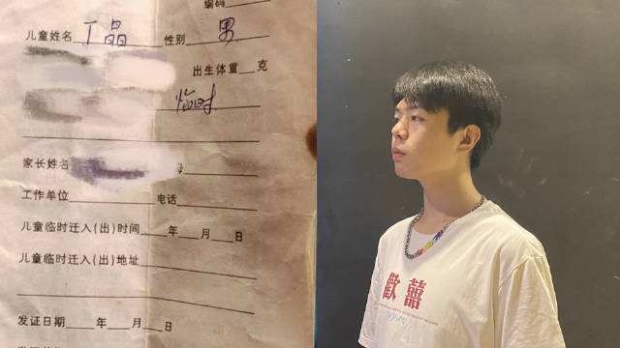 编码
儿童姓名 丁晶 性别 男
出生体重 克
临时
家长姓名
工作单位 电话
儿童临时迁入(出)时间 年 月 日
儿童临时迁入(出)地址
发证日期 年 月 日
歡囍